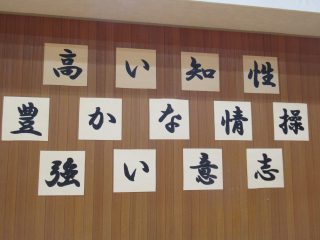 高い知性
豊かな情操
強い意志